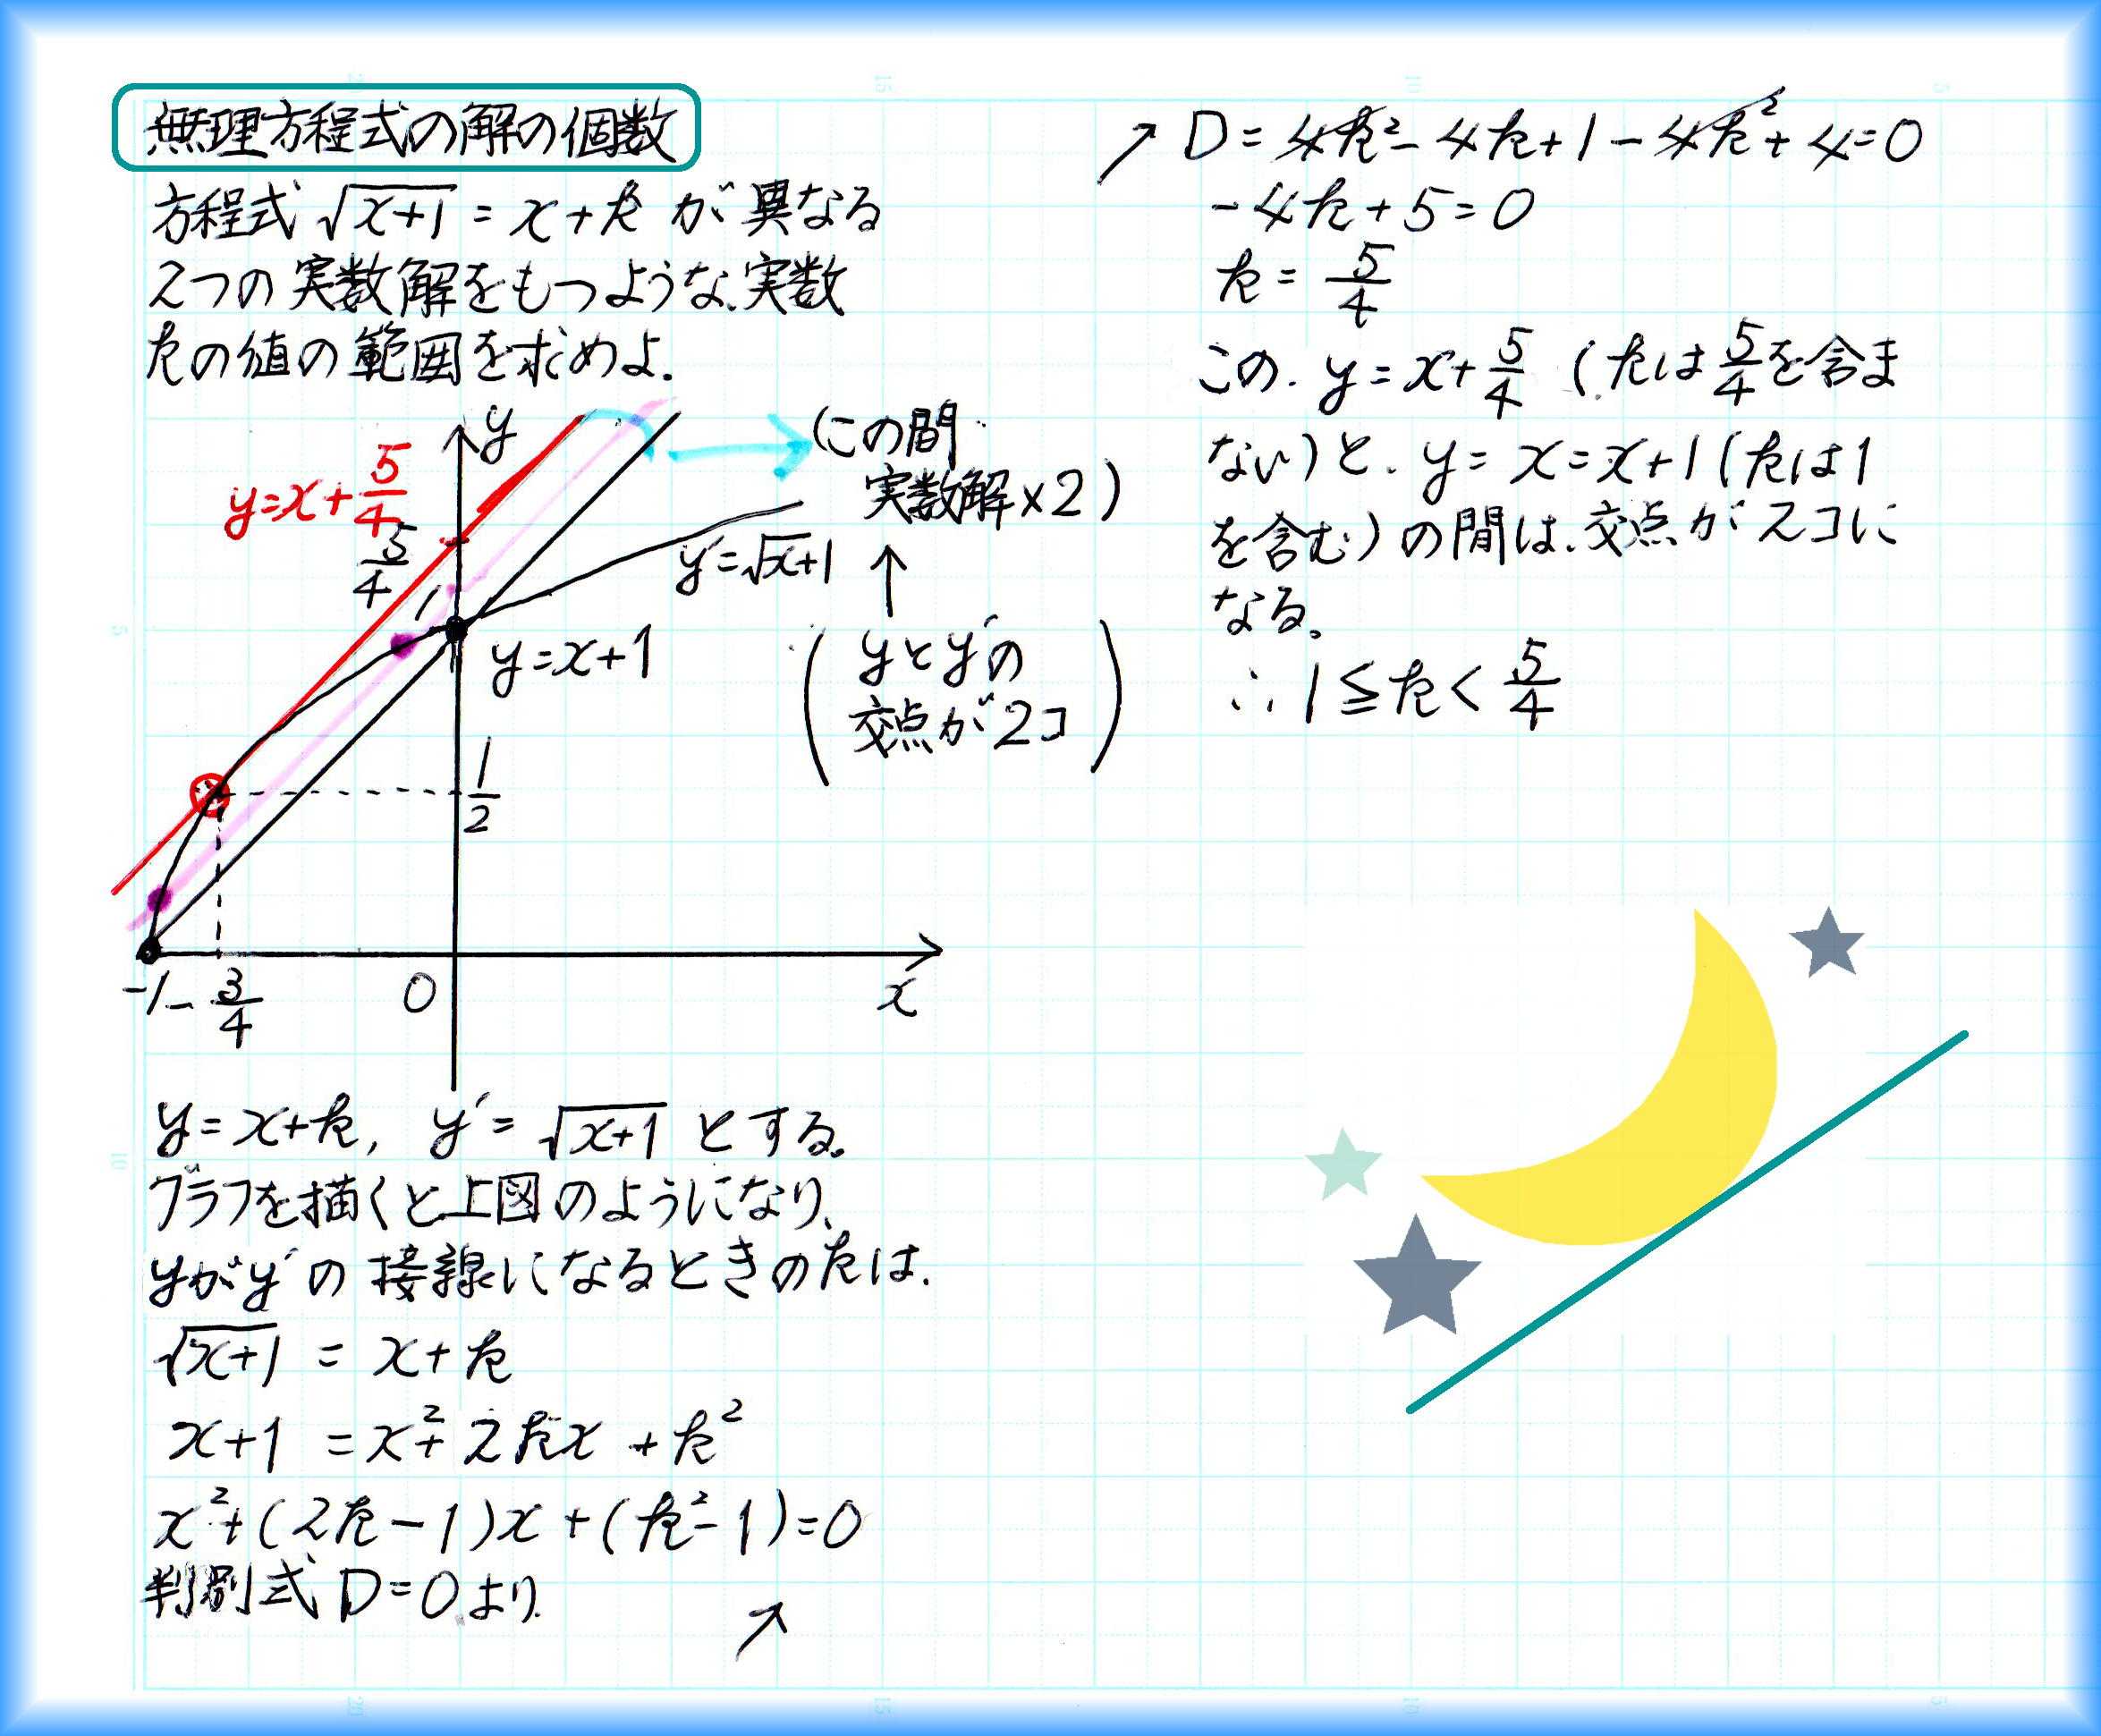 無理方程式の解の個数
方程式 √(x+1) = x+k が異なる
2つの実数解をもつような、実数
kの値の範囲を求めよ.
y
(この間
実数解×2)
y=x+5/4
5/4
1
y'=√x+1
↑
y=x+1
(yとy'の
交点が2コ)
1/2
-1
-3/4
0
x
y=x+k, y'=√(x+1) とする。
グラフを描くと上図のようになり、
yがy'の接線になるときのkは.
√(x+1) = x+k
x+1 = x²+2kx+k²
x²+(2k-1)x+(k²-1)=0
判別式 D=0より
↗
↗ D=4k²-4k+1-4k²+4=0
-4k+5=0
k=5/4
この. y=x+5/4 (kは5/4を含ま
ない)と. y=x=x+1(kは1
を含む)の間は、交点が2コに
なる。
∴1≦k<5/4